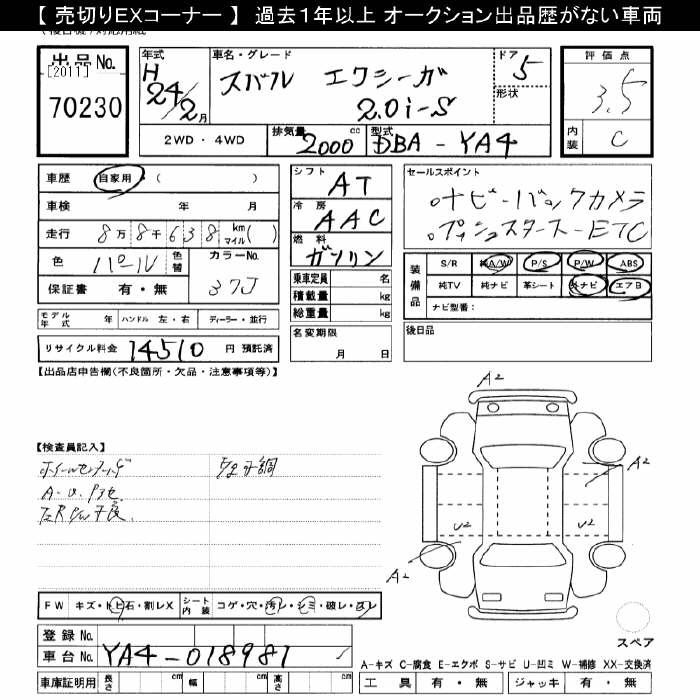 【 売切りEXコーナー 】 過去1年以上 オークション出品歴がない車両
出品No.
[2011]
70230
年式
H
24/2月
車名・グレード
スバル エクシーガ
2.0i-S
ドア
5
形状
評価点
3.5
内装
C
2WD・4WD
排気量
2000 cc
型式
DBA - YA4
車歴 自家用 ( )
車検 年 月
走行 8万8千638 km マイル( )
色 パール 色替
カラーNo.
37J
保証書 有・無
シフト
AT
冷房
AAC
燃料
ガソリン
乗車定員 名
積載量 kg
総重量 kg
セールスポイント
ナビ・バックカメラ
プッシュスタート ETC
装備品
S/R 純A/W P/S P/W ABS
純TV 純ナビ 革シート 外ナビ エアB
ナビ型番:
モデル年式 年 ハンドル 左・右 ディーラー・並行
リサイクル料金 14510 円 預託済
名変期限
月 日
後日品
【出品店申告欄(不良箇所・欠品・注意事項等)】
【検査員記入】
A2
A2
U2
U2
A2
FW キズ・トビ石・割レX シート内装 コゲ・穴・汚レ・シミ・破レ・スレ
登録No.
車台No. YA4-018981
スペア
A-キズ C-腐食 E-エクボ S-サビ U-凹ミ W-補修 XX-交換済
車庫証明用 長さ cm 幅 cm 高さ cm
工具 有・無 ジャッキ 有・無